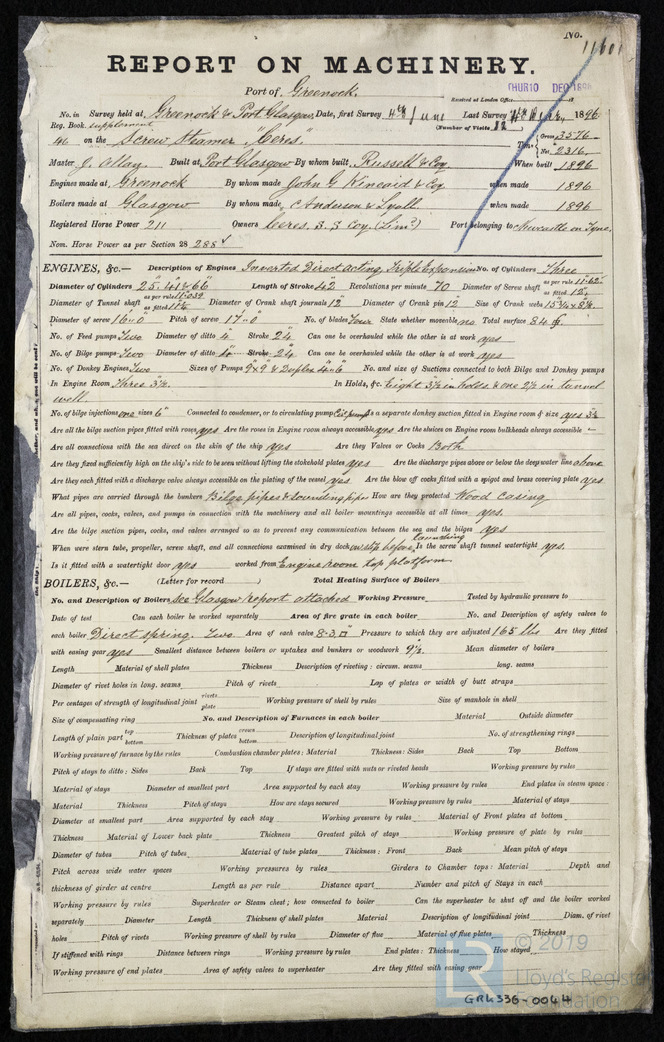 No. 11601
REPORT ON MACHINERY.
Port of Greenock.
Received at London Office THUR 10 DEC 1896 18
No. in Survey held at Greenock & Port Glasgow Date, first Survey 4th June Last Survey 1896
Reg. Book. supplement (Number of Visits 22)
46 on the Screw Steamer "Ceres" Tons { Gross 3576 Net 2316
Master J. Allay Built at Port Glasgow By whom built Russell & Coy When built 1896
Engines made at Greenock By whom made John G Kincaid & Coy when made 1896
Boilers made at Glasgow By whom made Anderson & Lyall when made 1896
Registered Horse Power 211 Owners Ceres. S. S. Coy (Limd) Port belonging to Newcastle on Tyne
Nom. Horse Power as per Section 28 288
ENGINES, &c.— Description of Engines Inverted Direct Acting, Triple Expansion No. of Cylinders Three
Diameter of Cylinders 25. 41 & 66 Length of Stroke 42 Revolutions per minute 70 Diameter of Screw shaft as per rule 11.62 as fitted 12
Diameter of Tunnel shaft as per rule 11.039 as fitted 11½ Diameter of Crank shaft journals 12 Diameter of Crank pin 12 Size of Crank webs 15¾ x 8½
Diameter of screw 16-0 Pitch of screw 17-0 No. of blades Four State whether moveable no Total surface 84 ft.
No. of Feed pumps Two Diameter of ditto 4 Stroke 24 Can one be overhauled while the other is at work yes
No. of Bilge pumps Two Diameter of ditto 4 Stroke 24 Can one be overhauled while the other is at work yes
No. of Donkey Engines Two Sizes of Pumps 9 x 9 & Duplex 4 x 6 No. and size of Suctions connected to both Bilge and Donkey pumps
In Engine Room Three 3½ In Holds, &c. Eight 3½ in holds & one 2½ in tunnel
well.
No. of bilge injections one sizes 6" Connected to condenser, or to circulating pump Cir pump Is a separate donkey suction fitted in Engine room & size yes 3½
Are all the bilge suction pipes fitted with roses yes Are the roses in Engine room always accessible yes Are the sluices on Engine room bulkheads always accessible –
Are all connections with the sea direct on the skin of the ship yes Are they Valves or Cocks Both
Are they fixed sufficiently high on the ship's side to be seen without lifting the stokehold plates yes Are the discharge pipes above or below the deep water line above
Are they each fitted with a discharge valve always accessible on the plating of the vessel yes Are the blow off cocks fitted with a spigot and brass covering plate yes
What pipes are carried through the bunkers Bilge pipes & sounding pipes How are they protected Wood casing
Are all pipes, cocks, valves, and pumps in connection with the machinery and all boiler mountings accessible at all times yes.
Are the bilge suction pipes, cocks, and valves arranged so as to prevent any communication between the sea and the bilges yes
When were stern tube, propeller, screw shaft, and all connections examined in dry dock on slip before launching Is the screw shaft tunnel watertight yes.
Is it fitted with a watertight door yes worked from Engine room top platform
BOILERS, &c.— (Letter for record ) Total Heating Surface of Boilers
No. and Description of Boilers See Glasgow report attached Working Pressure Tested by hydraulic pressure to
Date of test Can each boiler be worked separately Area of fire grate in each boiler No. and Description of safety valves to
each boiler Direct spring. Two Area of each valve 8.3 □" Pressure to which they are adjusted 165 lbs Are they fitted
with easing gear yes Smallest distance between boilers or uptakes and bunkers or woodwork 9½ Mean diameter of boilers
Length Material of shell plates Thickness Description of riveting: circum. seams long. seams
Diameter of rivet holes in long. seams Pitch of rivets Lap of plates or width of butt straps
Per centages of strength of longitudinal joint rivets plate Working pressure of shell by rules Size of manhole in shell
Size of compensating ring No. and Description of Furnaces in each boiler Material Outside diameter
Length of plain part top bottom Thickness of plates crown bottom Description of longitudinal joint No. of strengthening rings
Working pressure of furnace by the rules Combustion chamber plates: Material Thickness: Sides Back Top Bottom
Pitch of stays to ditto: Sides Back Top If stays are fitted with nuts or riveted heads Working pressure by rules
Material of stays Diameter at smallest part Area supported by each stay Working pressure by rules End plates in steam space:
Material Thickness Pitch of stays How are stays secured Working pressure by rules Material of stays
Diameter at smallest part Area supported by each stay Working pressure by rules Material of Front plates at bottom
Thickness Material of Lower back plate Thickness Greatest pitch of stays Working pressure of plate by rules
Diameter of tubes Pitch of tubes Material of tube plates Thickness: Front Back Mean pitch of stays
Pitch across wide water spaces Working pressures by rules Girders to Chamber tops: Material Depth and
thickness of girder at centre Length as per rule Distance apart Number and pitch of Stays in each
Working pressure by rules Superheater or Steam chest; how connected to boiler Can the superheater be shut off and the boiler worked
separately Diameter Length Thickness of shell plates Material Description of longitudinal joint Diam. of rivet
holes Pitch of rivets Working pressure of shell by rules Diameter of flue Material of flue plates Thickness
If stiffened with rings Distance between rings Working pressure by rules End plates: Thickness How stayed
Working pressure of end plates Area of safety valves to superheater Are they fitted with easing gear
LR
© 2019
Lloyd's Register
Foundation
GRK336-0064